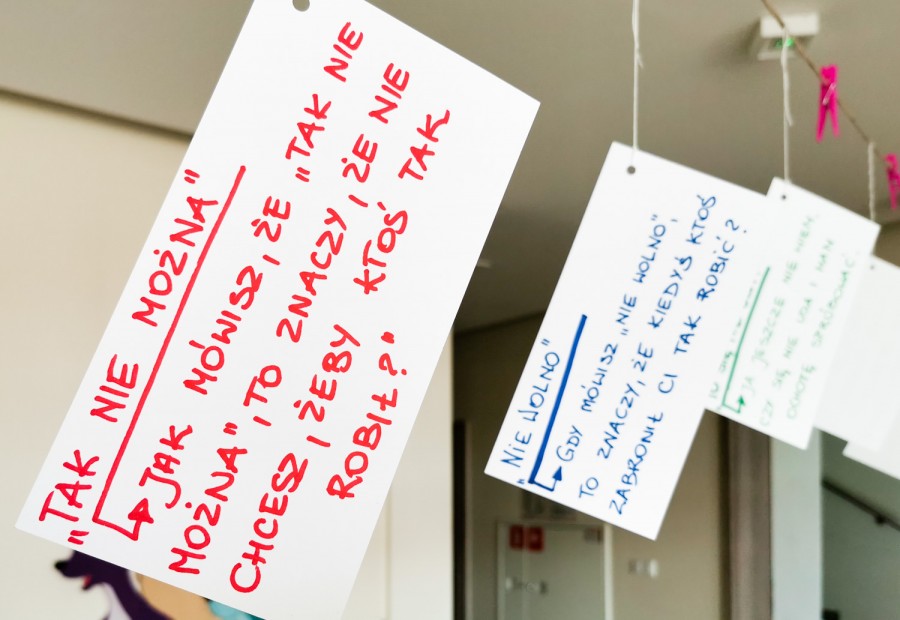 "TAK NIE MOŻNA"
↳ JAK MÓWISZ, ŻE „TAK NIE
MOŻNA", TO ZNACZY, ŻE NIE
CHCESZ, ŻEBY KTOŚ TAK
ROBIŁ?"
„NIE WOLNO"
↳ GDY MÓWISZ „NIE WOLNO",
TO ZNACZY, ŻE KIEDYŚ KTOŚ
ZABRONIŁ CI TAK ROBIĆ?
↳ JA JESZCZE NIE WIEM,
CZY SIĘ NIE UDA I MAM
OCHOTĘ SPRÓBOWAĆ